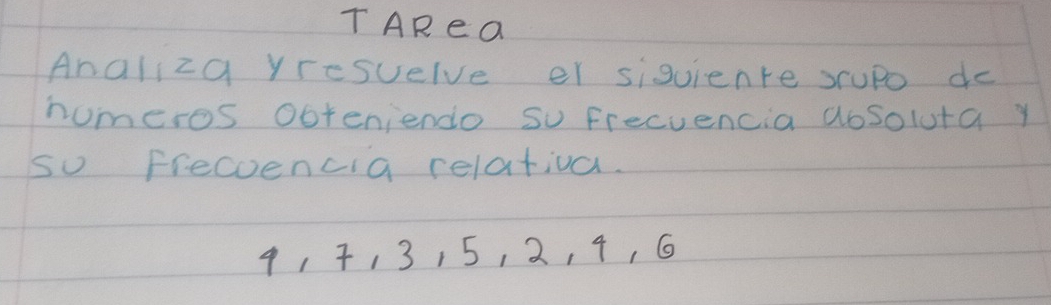 TARea
Analiza y resuelve el siguiente grupo de
numeros obteniendo su frecuencia absoluta y
su frecuencia relativa.
4, 7, 3, 5, 2, 4, 6